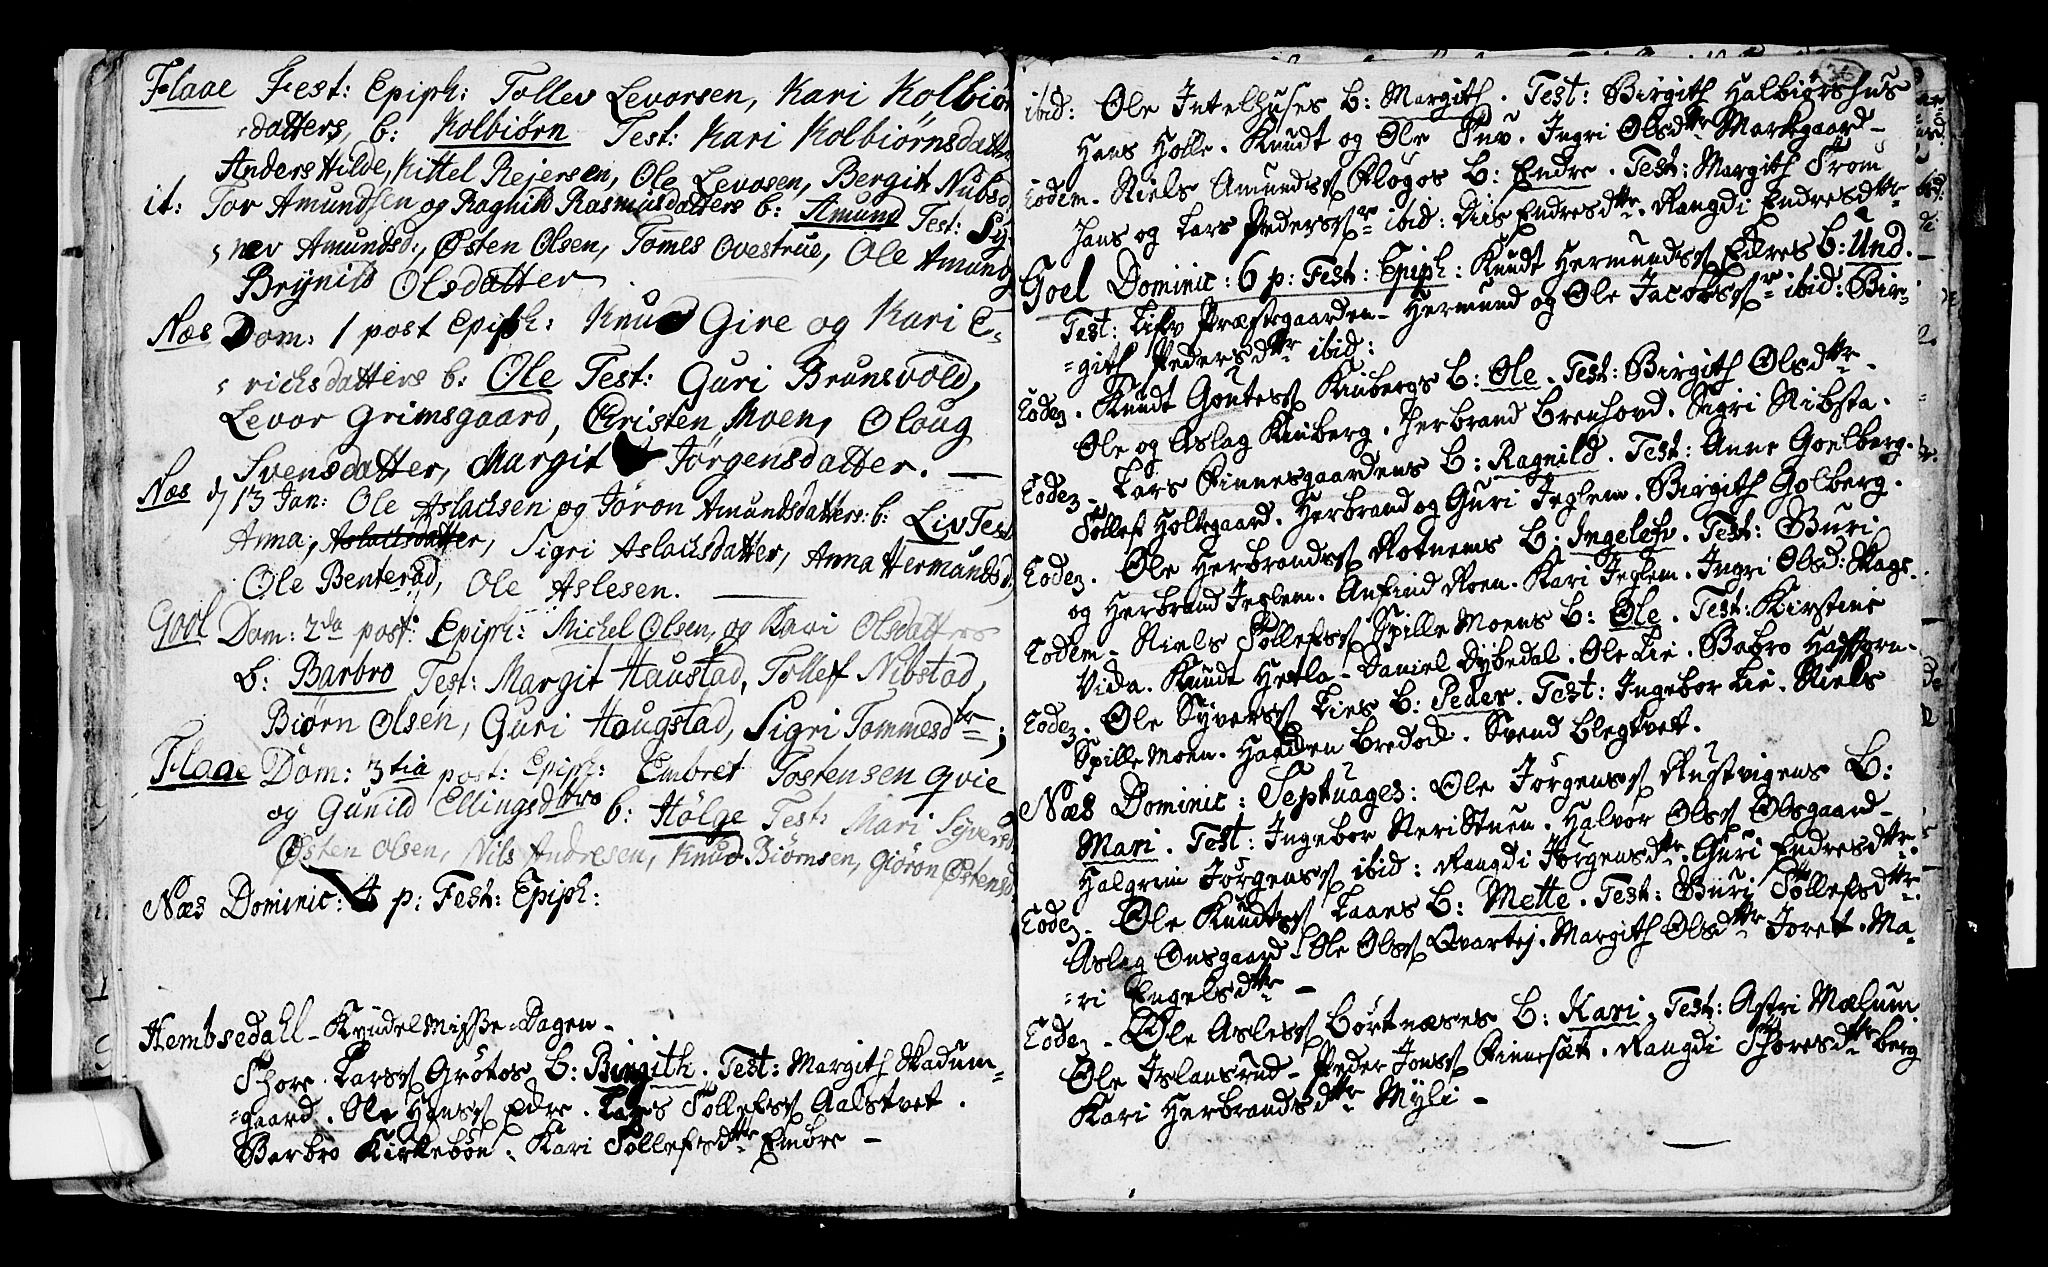 Flaae Fest: Epiph: Tollev Levorsen, Kari Kolbiørns
datters, b: Kolbiørn Test: Kari Kolbiørnsdatter
Anders Hilde, Kittel Rejersen, Ole Levosen, Bergit Nubsd
it: Tor Amundsen og Ragnild Rasmusdatters b: Amund Test: Sy-
nev Amundsd:, Østen Olsen, Tomes Ovestrue, Ole Amunds
Brynild Olsdatter
Næs Dom: 1 post Epiph: Knud Gire og Kari E-
richsdatters b: Ole Test: Guri Brunsvold,
Levor Grimsgaard, Christen Moen, Oloug
Svensdatter, Margit Jørgensdatter. —
Næs d/ 13 Jan: Ole Aslachsen og Jøron Amundsdatters: b: Liv Test
Anna, Aslachsdatter, Sigri Aslachsdatter, Anna Hermundsd,
Ole Benterud, Ole Aslesen. —
Gool Dom: 2da post: Epiph: Michel Olsen, og Kari Olsdatters
b: Barbro Test: Margit Haustad, Tollef Nibstad,
Biørn Olsen, Guri Hougstad, Sigri Tommesdtr;
Flaae Dom: 3tia post: Epiph: Embret Tostensen Qvie
og Gunild Ellingsdtrs b: Hølge Test: Mari Syversd
Østen Olsen, Nils Andresen, Knud Biørnsen, Giøron Østensd.
Næs Dominic: 4 p: Fest: Epiph:
Hembsedahl - Kyndelmisse-Dagen -
Thore Lars⟨⟩ Grøtos B: Birgith. Test: Margith Skadum-
-gaard. Ole Hans⟨⟩ Edre. Lars Tollefs⟨⟩ Aalstvet.
Barbro Kirkebøn. Kari Tollefsdtr Embre —
36
ibid: Ole Intelhuses B: Margith. Test: Birgith Halbiørshus
Hans Holle. Knudt og Ole Tuv. Ingri Olsdtr Markgaard -
Eodem - Niels Amunds⟨⟩ Flogos B: Endre. Test: Margith Trom
Hans og Lars Peders⟨⟩r ibid: Liis Endresdtr. Rangdi Endresdtr
Goel Dominic: 6 p: Fest: Epiph: Knudt Hermunds⟨⟩ Edres B: Und.
Test: Lisv Præstgaarden - Hermund og Ole Jacobs⟨⟩r ibid: Bir-
-gith Pedersdtr ibid:
Eodem. Knudt Goutes⟨⟩ Kinbergs B: Ole. Test: Birgith Olsdtr.
Ole og Aslag Kinberg. Herbrand Brenhovd. Sigri Nibsta.
Eodem - Lars Finnesgaardens B: Ragnild. Test: Anne Goelberg.
Tollef Holtegaard. Herbrand og Guri Jeglem. Birgith Golberg.
Eodem. Ole Herbrands⟨⟩ Rotnems B: Ingeleh. Test: Guri
og Herbrand Jeglem. Anfind Roen. Kari Jeglem. Ingri Olsd: Skags.
Eodem - Niels Tollefs⟨⟩ Spille Moens B: Ole. Test: Kirstine
Vida. Knudt Hesla - Daniel Dybedal. Ole Lie. Babro Hafstorn.
Eodem. Ole Syvers⟨⟩ Lies B: Peder. Test: Ingebor Lie. Niels
Spille Moen. Halden Bredod. Svend Blegtvet.
Næs Dominic: Septuages: Ole Jørgens⟨⟩ Rustvigens B:
Mari. Test: Ingebor NeriStuen. Halvor Ols⟨⟩ Olsgaard -
Halgrim Jørgens⟨⟩ ibid: Rangdi Jørgensdtr. Guri Endresdtr.
Eodem - Ole Knudts⟨⟩ Laaes B: Mette. Test: Guri Tollefsdtr.
Aslag Onsgaard - Ole Ols⟨⟩ Qvartej. Margith Olsdtr Joret. Ma-
-ri Engelsdtr —
Eodem - Ole Asles⟨⟩ Børtnæses B: Kari. Test: Astri Mælum.
Ole Islansrud - Peder Jons⟨⟩ Finnesæt. Rangdi Thoresdtr berg
Kari Herbrandsdtr Myli -